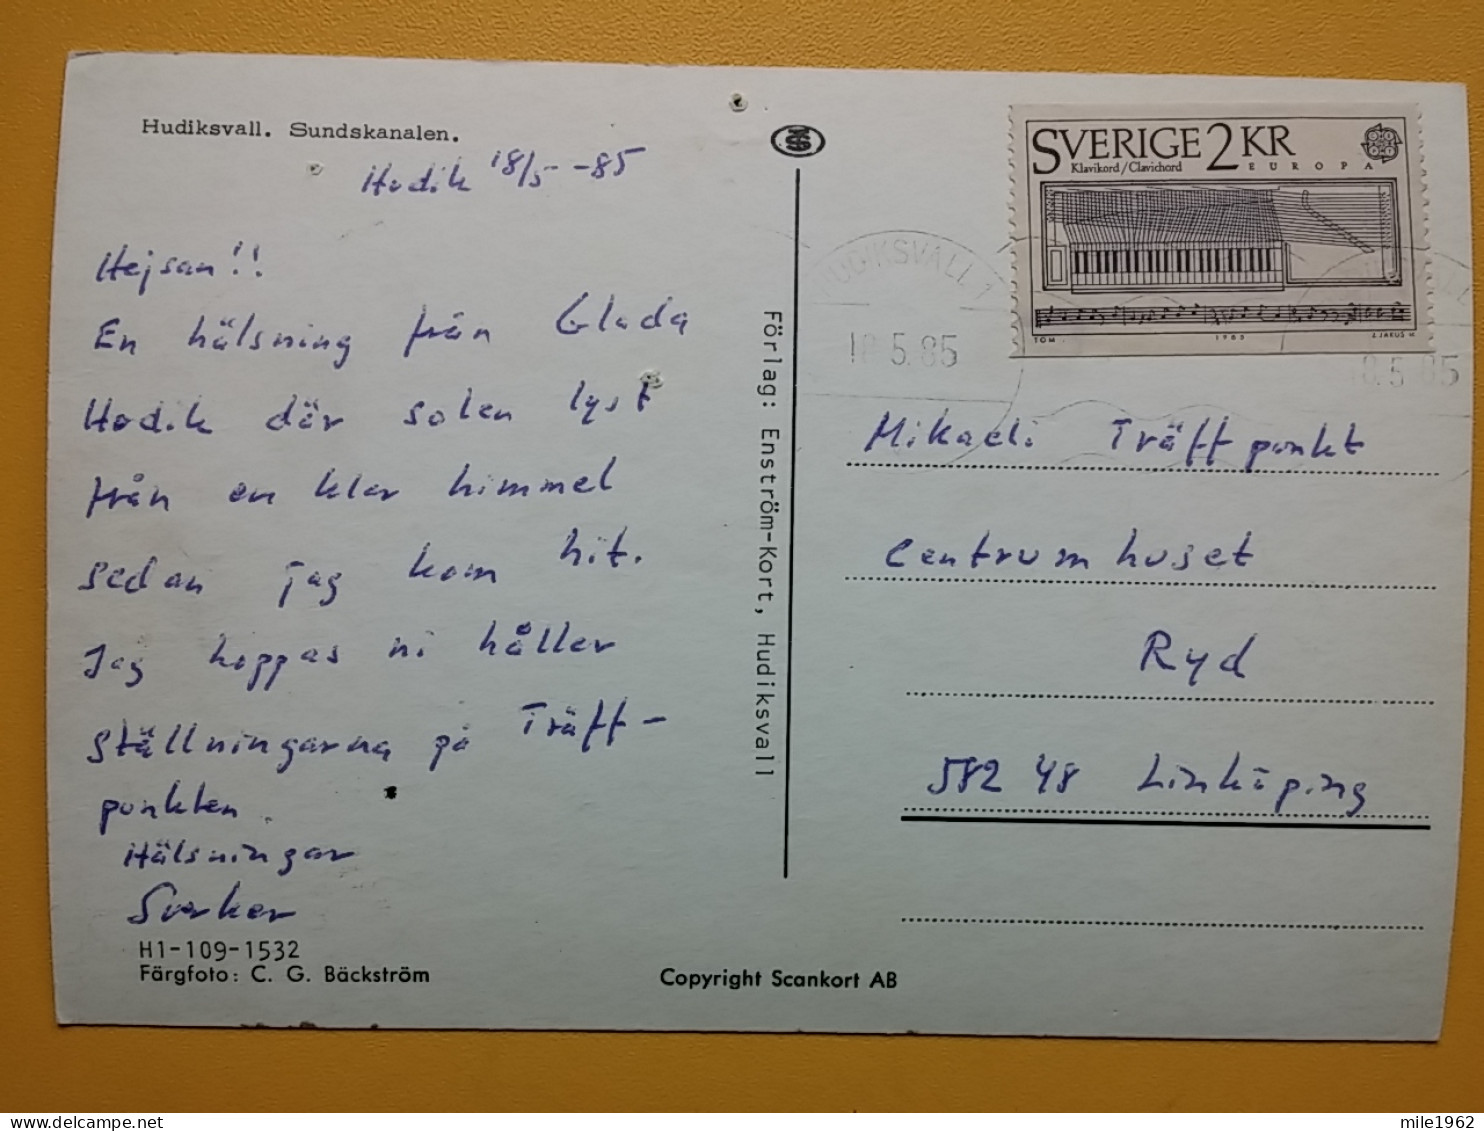 Hudiksvall. Sundskanalen.
Hudik 18/5 -85
Hejsan!!
En hälsning från Glada
Hudik där solen lyst
från en klar himmel
sedan jag kom hit.
Jag hoppas ni håller
ställningarna på Träff-
punkten
Hälsningar
Sverker
H1-109-1532
Färgfoto: C. G. Bäckström
Förlag: Enström-Kort, Hudiksvall
Copyright Scankort AB
SVERIGE 2 KR
Klavikord/Clavichord EUROPA
TOM. 1985 Z. JAKUS
HUDIKSVALL 1
18.5.85
18.5.85
Mikaeli Träffpunkt
Centrumhuset
Ryd
582 48 Linköping
mile1962